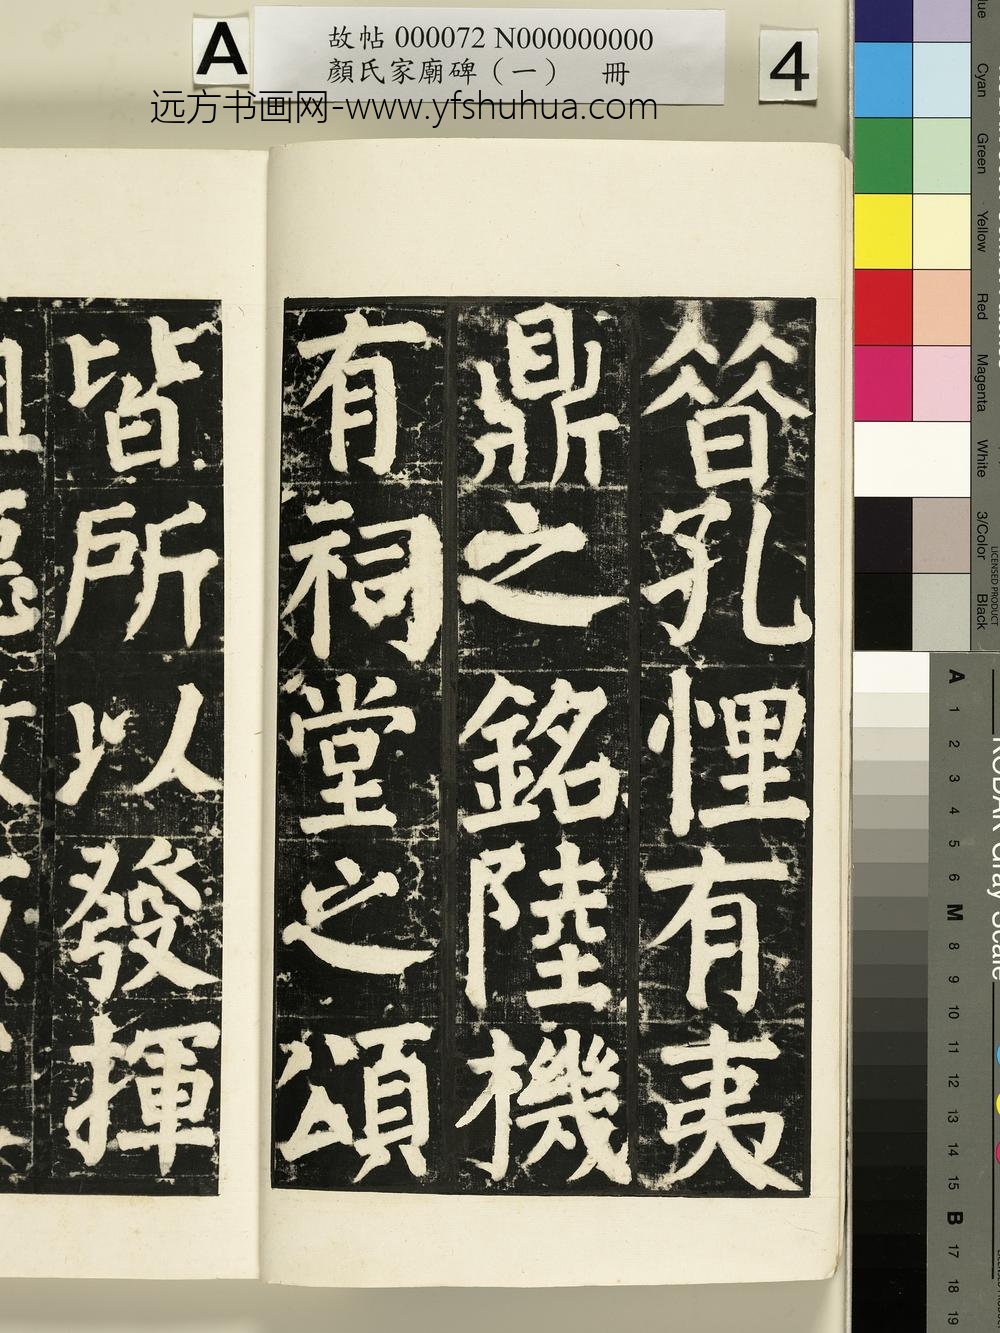 A
故帖 000072 N000000000
顏氏家廟碑（一） 冊
4
远方书画网-www.yfshuhua.com
昔孔悝有夷
鼎之銘陸機
有祠堂之頌
皆所以發揮
Cyan
Green
Yellow
Red
Magenta
White
3/Color
Black
LICENSED PRODUCT
KODAK Gray Scale
A 1 2 3 4 5 6 M 8 9 10 11 12 13 14 15 B 17 18 19